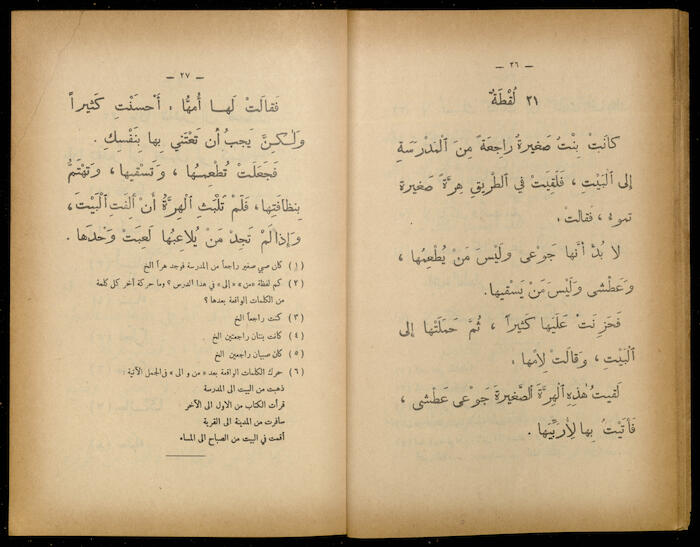 — ٢٦ —
٢١ لُقْطَةٌ
كانَتْ بِنْتٌ صَغيرَةٌ راجعَةً مِنَ الْمَدْرَسَةِ
إلى الْبَيْتِ ، فَلَقِيَتْ في الطَّريقِ هِرَّةً صَغيرة
تموء ، فَقالَتْ :
لا بُدَّ أنَّها جَوْعى وَلَيْسَ مَنْ يُطْعِمُها ،
وَعَطْشى وَلَيْسَ مَنْ يَسْقيها.
فَحَزِنَتْ عَلَيْها كَثيراً ، ثُمَّ حَمَلَتْها إلى
الْبَيْتِ ، وَقالَتْ لأمِّها .
لَقيتُ هٰذِهِ الْهِرَّةَ الصَّغيرَةَ جَوْعى عَطْشى ،
فَأتَيْتُ بِها لأُرَبِّيَها .
— ٢٧ —
فَقالَتْ لَها أُمُّها : أحْسَنْتِ كَثيراً
وَلٰكِنْ يَجِبُ أن تَعْتَني بِها بِنَفْسِكِ .
فَجَعَلَتْ تُطْعِمُها ، وَتَسْقيها ، وَتَهْتَمُّ
بِنَظافَتِها، فَلَمْ تَلْبَثِ الْهِرَّةُ أنْ ألِفَتِ الْبَيْتَ،
وَإذا لَمْ تَجِدْ مَنْ يُلاعبُها لَعِبَتْ وَحْدَها .
(١) كان صبي صغير راجعاً من المدرسة فوجد هراً الخ
(٢) كم لفظة «من» «إلى» في هذا الدرس ؟ وما حركة آخر كل كلمة
من الكلمات الواقعة بعدها ؟
(٣) كنت راجعاً الخ
(٤) كانت بنتان راجعتين الخ
(٥) كان صبيان راجعين الخ
(٦) حرك الكلمات الواقعة بعد «من و الى» في الجمل الآتية
ذهبت من البيت الى المدرسة
قرأت الكتاب من الاول الى الآخر
سافرت من المدينة الى القرية
أقمت في البيت من الصباح الى المساء